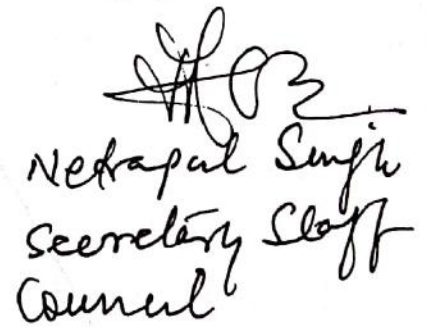 Netrapal Singh
Secretary Staff
Council